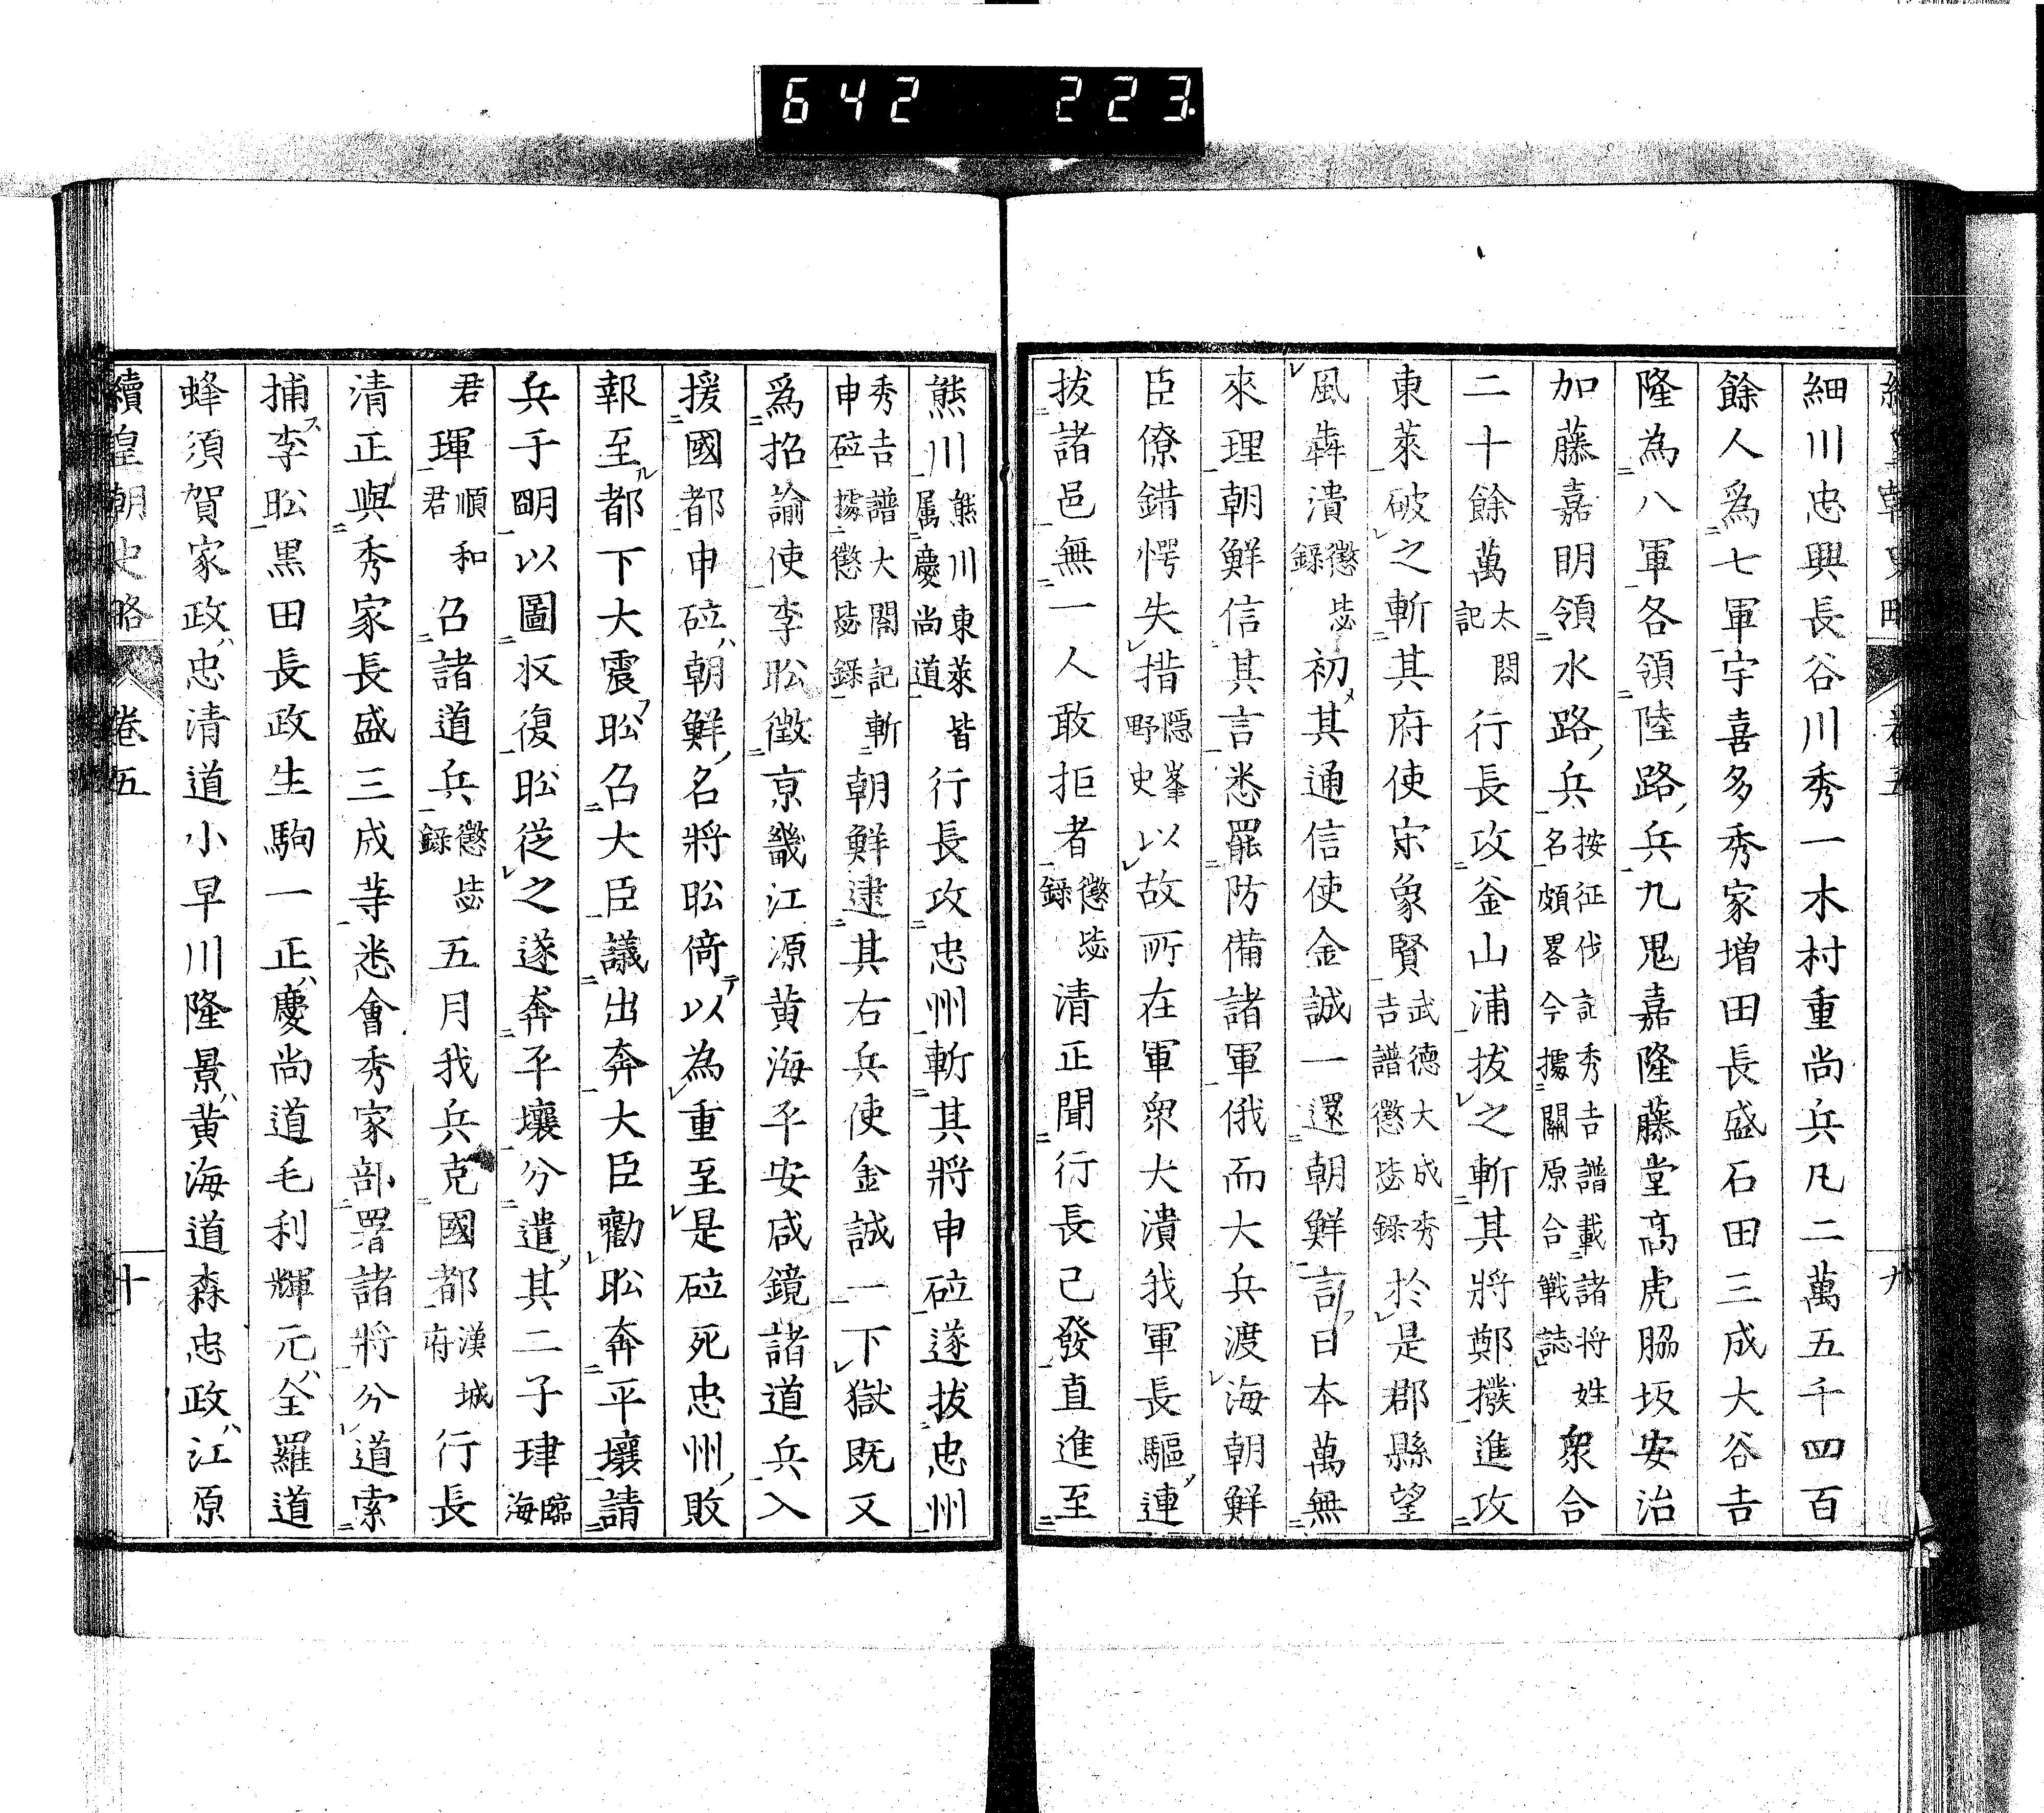 642 223
細川忠興長谷川秀一木村重尚兵凡二萬五千四百
餘人爲七軍宇喜多秀家増田長盛石田三成大谷吉
隆為八軍各領陸路兵九鬼嘉隆藤堂高虎脇坂安治
加藤嘉明領水路兵按征伐記秀吉譜載諸将姓名頗畧今據關原合戰誌衆合
二十餘萬太閤記行長攻釜山浦拔之斬其將鄭撥進攻
東萊破之斬其府使宋象賢武德大成秀吉譜懲毖錄於是郡縣望
風犇潰懲毖錄初其通信使金誠一還朝鮮言日本萬無
來理朝鮮信其言悉罷防備諸軍俄而大兵渡海朝鮮
臣僚錯愕失措隱峯野史以故所在軍衆大潰我軍長驅連
拔諸邑無一人敢拒者懲毖錄清正聞行長已發直進至
熊川熊川東萊皆属慶尚道行長攻忠州斬其將申砬遂拔忠州
秀吉譜大閤記申砬據懲毖錄斬朝鮮逮其右兵使金誠一下獄既又
爲招諭使李昖徵京畿江源黄海平安咸鏡諸道兵入
援國都申砬朝鮮名將昖倚以為重至是砬死忠州敗
報至都下大震昖召大臣議出奔大臣勸昖奔平壤請
兵于明以圖收復昖從之遂奔平壤分遣其二子珒臨海
君琿順和君召諸道兵懲毖錄五月我兵克國都漢城府行長
清正與秀家長盛三成等悉會秀家部署諸將分道索
捕李昖黒田長政生駒一正慶尚道毛利輝元全羅道
蜂須賀家政忠清道小早川隆景黄海道森忠政江原
續皇朝史略 卷五 十